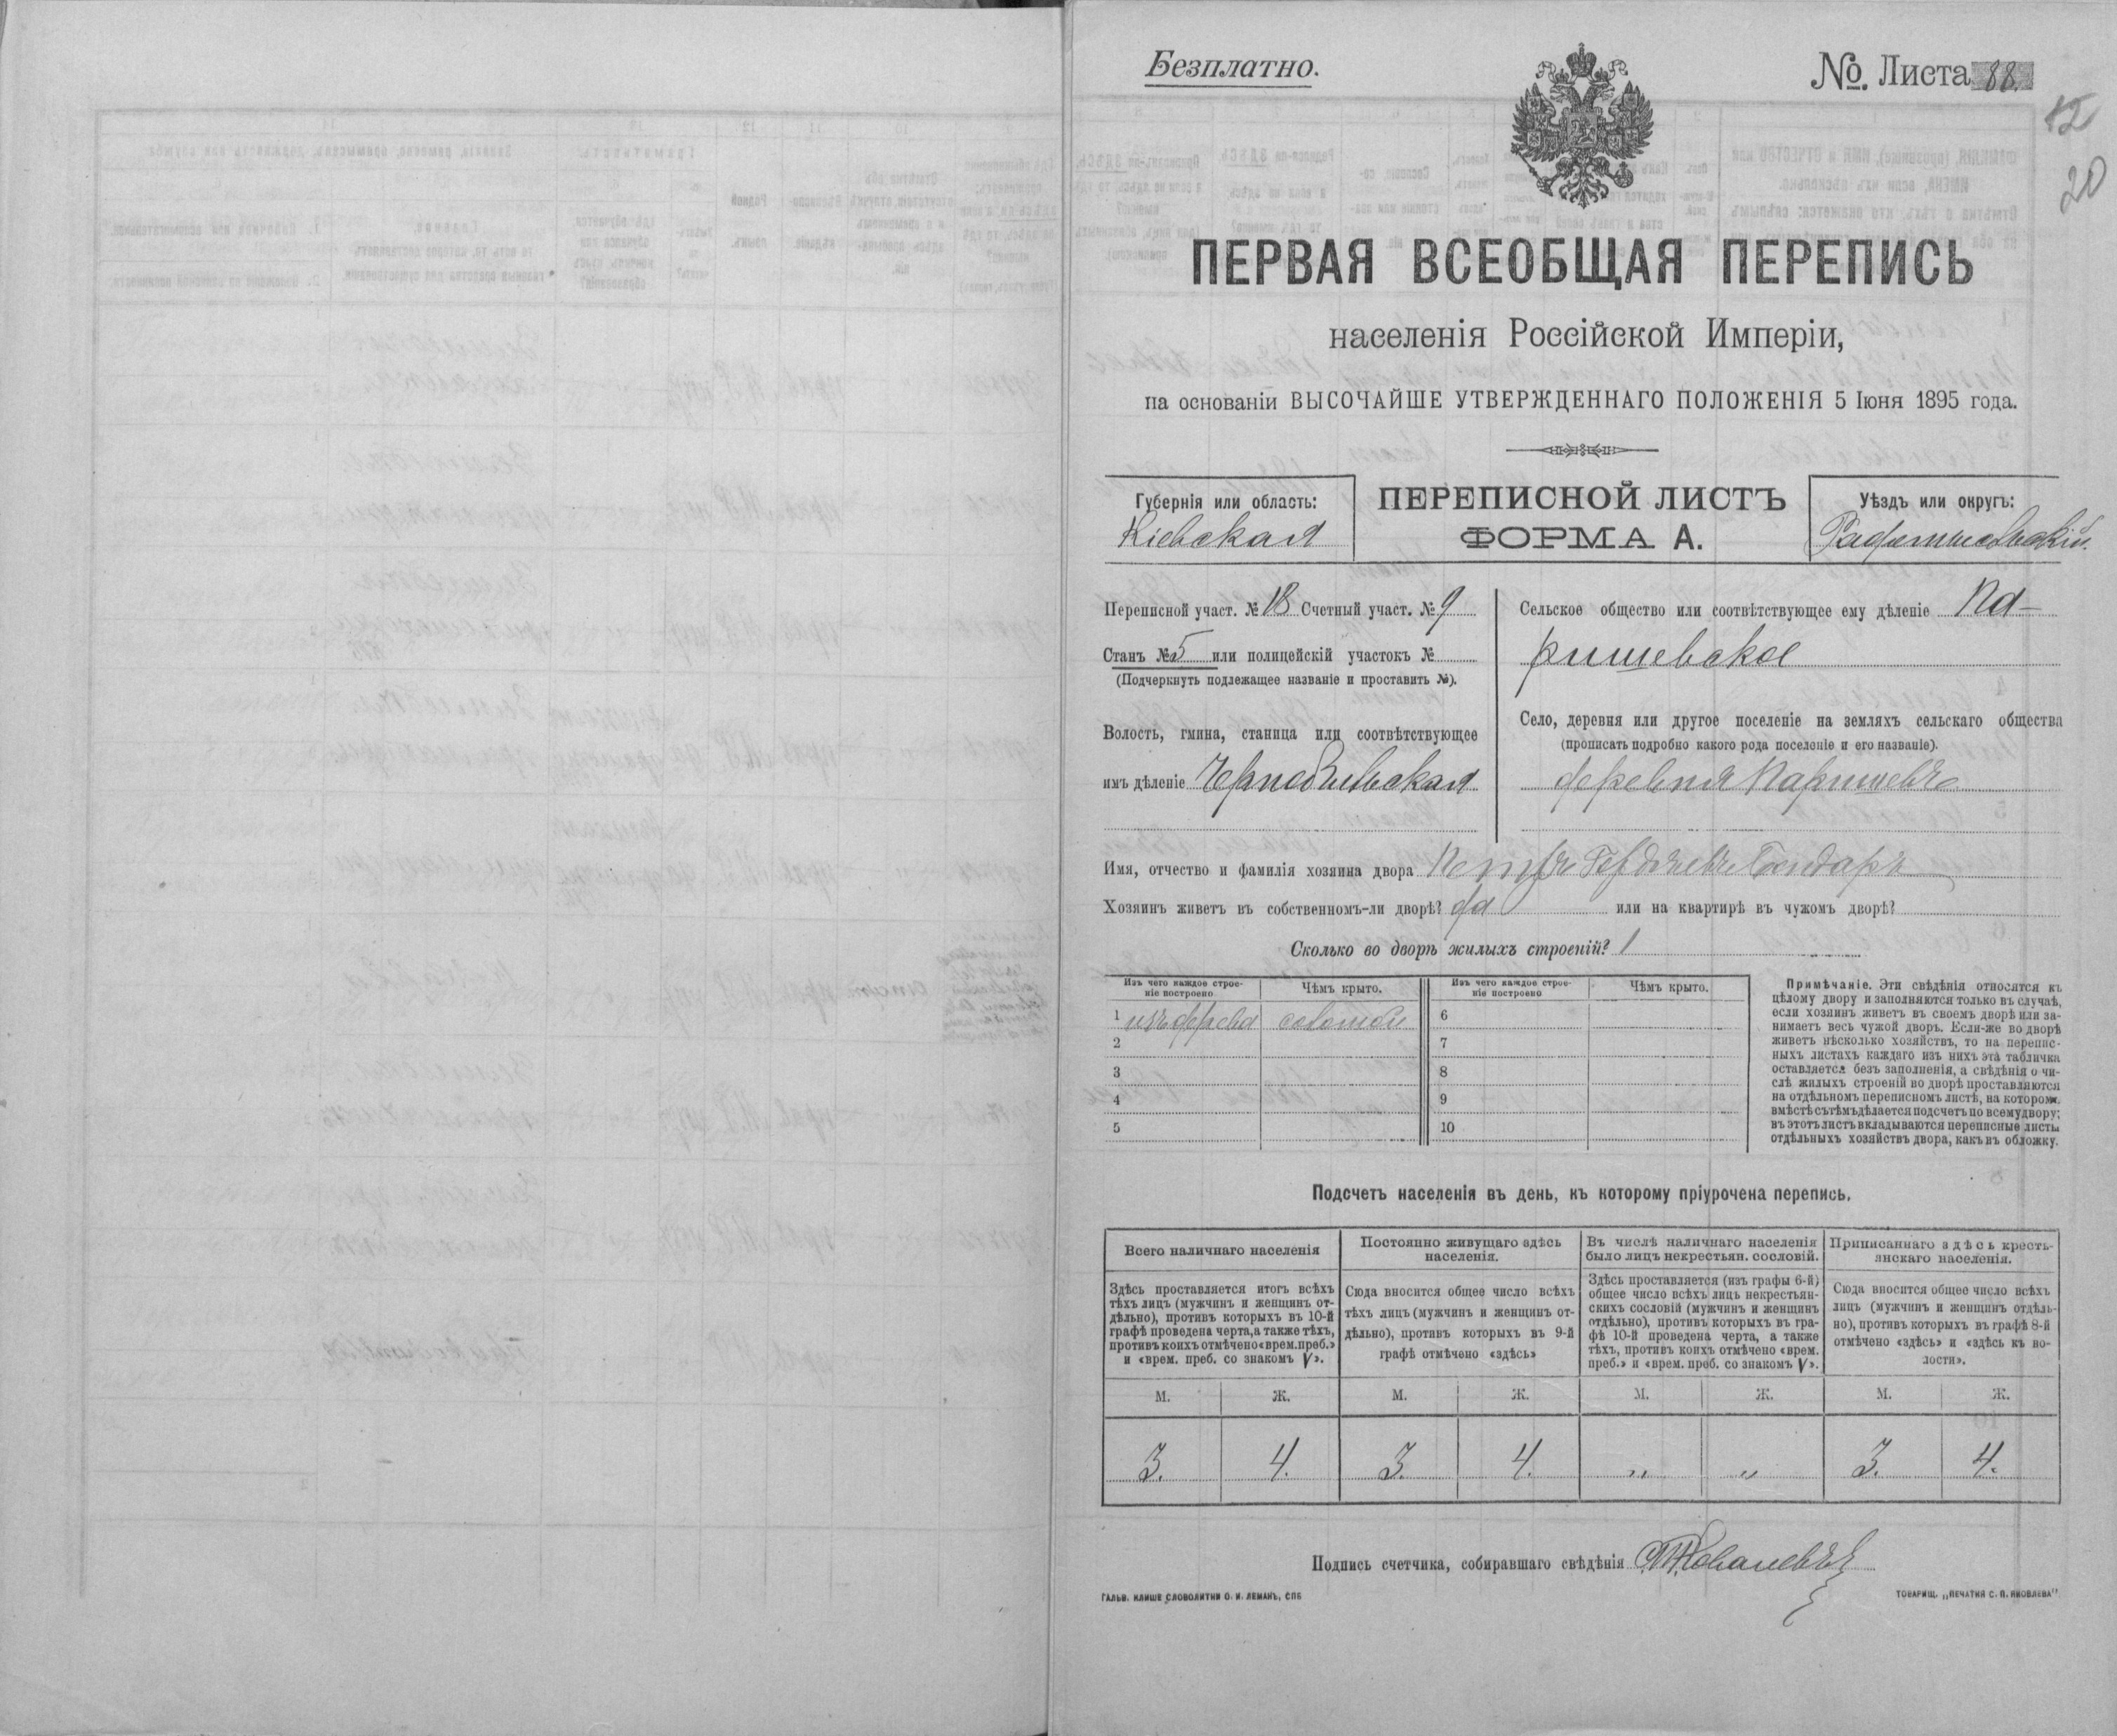 Безплатно.
№. Листа 88.
12
20
ПЕРВАЯ ВСЕОБЩАЯ ПЕРЕПИСЬ
населенія Россійской Имперіи,
на основаніи ВЫСОЧАЙШЕ УТВЕРЖДЕННАГО ПОЛОЖЕНІЯ 5 Іюня 1895 года.
Губернія или область:
Кіевская
ПЕРЕПИСНОЙ ЛИСТЪ
ФОРМА А.
Уѣздъ или округъ:
Радомысльскій.
Переписной участ. № 18 Счетный участ. № 9
Станъ № 5 или полицейскій участокъ №
(Подчеркнуть подлежащее названіе и проставить №).
Волость, гмина, станица или соотвѣтствующее
имъ дѣленіе Чернобыльская
Сельское общество или соотвѣтствующее ему дѣленіе Па-
ришевское
Село, деревня или другое поселеніе на земляхъ сельскаго общества
(прописать подробно какого рода поселеніе и его названіе).
деревня Паришевъ
Имя, отчество и фамилія хозяина двора Петръ Бондаръ
Хозяинъ живетъ въ собственномъ-ли дворѣ? да или на квартирѣ въ чужомъ дворѣ?
Сколько во дворѣ жилыхъ строеній? 1
Изъ чего каждое строе-
ніе построено
Чѣмъ крыто.
Изъ чего каждое строе-
ніе построено
Чѣмъ крыто.
1 изъ дерева соломой 6
2 7
3 8
4 9
5 10
Примѣчаніе. Эти свѣдѣнія относятся къ
цѣлому двору и заполняются только въ случаѣ,
если хозяинъ живетъ въ своемъ дворѣ или за-
нимаетъ весь чужой дворъ. Если-же во дворѣ
живетъ нѣсколько хозяйствъ, то на перепис-
ныхъ листахъ каждаго изъ нихъ эта табличка
оставляется безъ заполненія, а свѣдѣнія о чи-
слѣ жилыхъ строеній во дворѣ проставляются
на отдѣльномъ переписномъ листѣ, на которомъ
вмѣстѣ съ тѣмъ дѣлается подсчетъ по всему двору;
въ этотъ листъ вкладываются переписные листы
отдѣльныхъ хозяйствъ двора, какъ въ обложку.
Подсчетъ населенія въ день, къ которому пріурочена перепись.
Всего наличнаго населенія
Здѣсь проставляется итогъ всѣхъ
тѣхъ лицъ (мужчинъ и женщинъ от-
дѣльно), противъ которыхъ въ 10-й
графѣ проведена черта, а также тѣхъ,
противъ коихъ отмѣчено «врем. преб.»
и «врем. преб. со знакомъ V».
Постоянно живущаго здѣсь
населенія.
Сюда вносится общее число всѣхъ
тѣхъ лицъ (мужчинъ и женщинъ от-
дѣльно), противъ которыхъ въ 9-й
графѣ отмѣчено «здѣсь»
Въ числѣ наличнаго населенія
было лицъ некрестьян. сословій.
Здѣсь проставляется (изъ графы 6-й)
общее число всѣхъ лицъ некрестьян-
скихъ сословій (мужчинъ и женщинъ
отдѣльно), противъ которыхъ въ гра-
фѣ 10-й проведена черта, а также
тѣхъ, противъ коихъ отмѣчено «врем.
преб.» и «врем. преб. со знакомъ V».
Приписаннаго здѣсь кресть-
янскаго населенія.
Сюда вносится общее число всѣхъ
лицъ (мужчинъ и женщинъ отдѣль-
но), противъ которыхъ въ графѣ 8-й
отмѣчено «здѣсь» и «здѣсь къ во-
лости».
М. Ж. М. Ж. М. Ж. М. Ж.
3. 4. 3. 4. „ „ 3. 4.
Подпись счетчика, собиравшаго свѣдѣнія
ГАЛЬВ. КЛИШЕ СЛОВОЛИТНИ О. И. ЛЕМАНЪ, СПБ
ТОВАРИЩ. „ПЕЧАТНЯ С. П. ЯКОВЛЕВА"